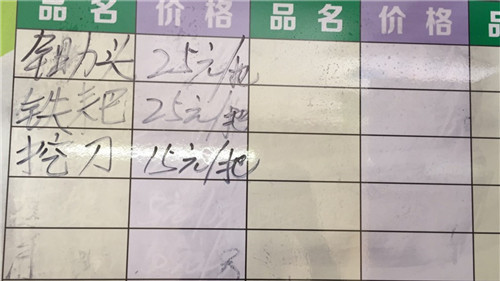 品名 价格 品名 价格
锄头 25元/把
铁耙 25元/把
挖刀 15元/把